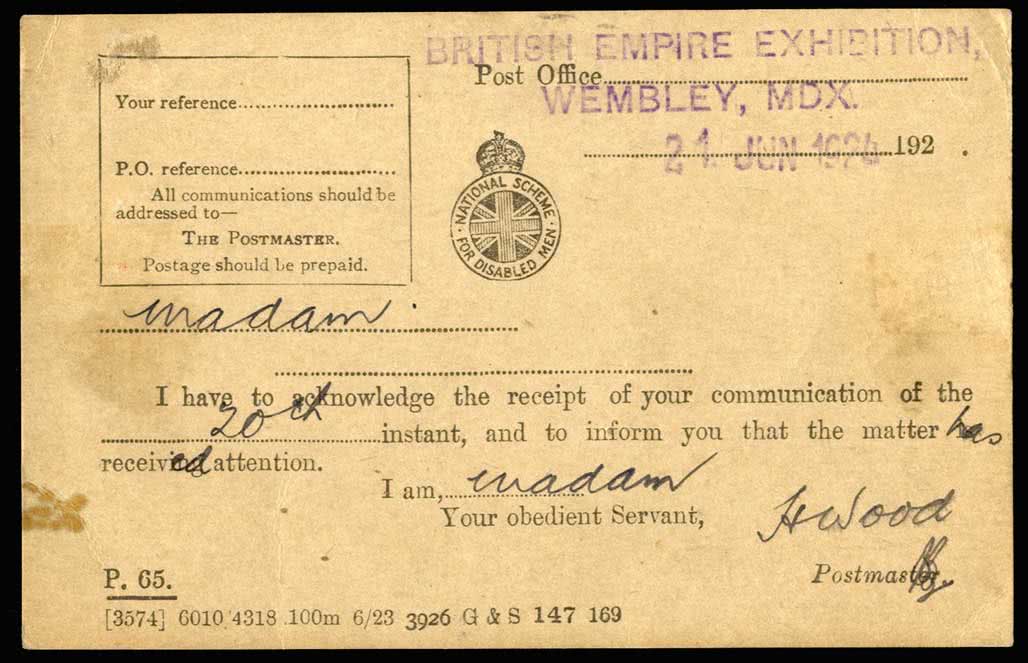 BRITISH EMPIRE EXHIBITION,
Post Office
WEMBLEY, MDX.
21 JUN 1924 192 .
Your reference
P.O. reference
All communications should be
addressed to—
THE POSTMASTER.
Postage should be prepaid.
NATIONAL SCHEME
FOR DISABLED MEN
Madam
I have to acknowledge the receipt of your communication of the
20th instant, and to inform you that the matter has
received attention.
I am, Madam
Your obedient Servant,
H Wood
Postmaster.
P. 65.
[3574] 6010 4318 100m 6/23 3926 G & S 147 169